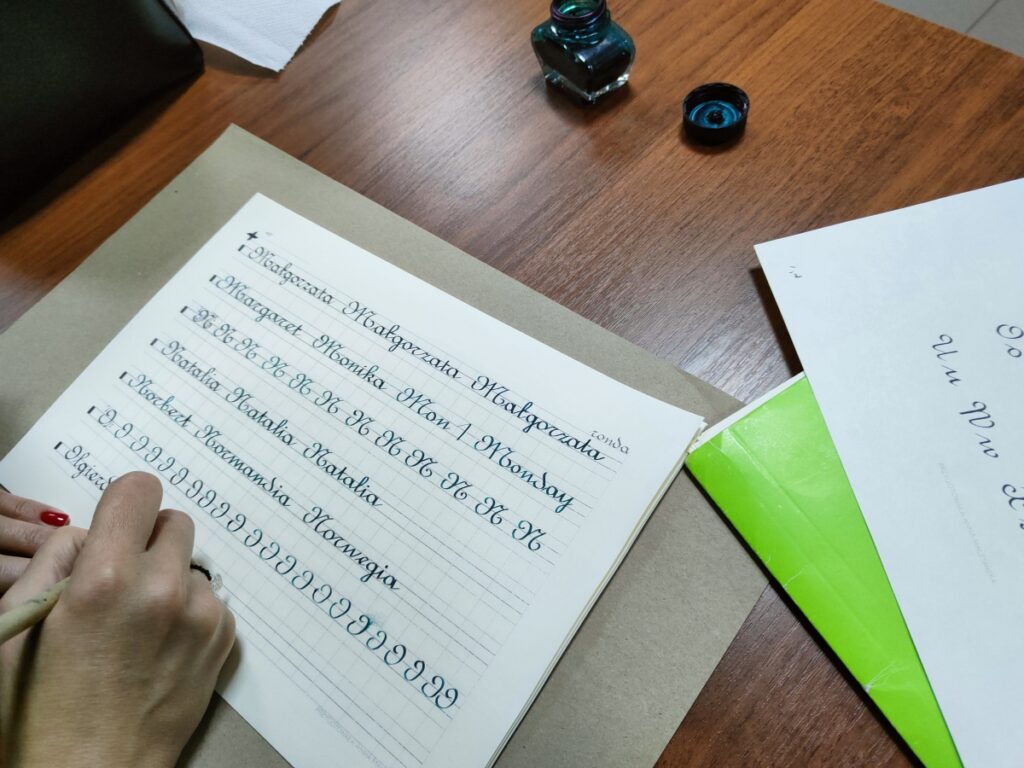 ronda
Małgorzata Małgorzata Małgorzata
Margaret Monika Mon Monday
N N N N N N N N N N N N
Natalia Natalia Natalia
Norbert Normandia Norwegia
O O O O O O O O O O O O O O O O O O O O O O
Olgierd
Oo
Uu Ww